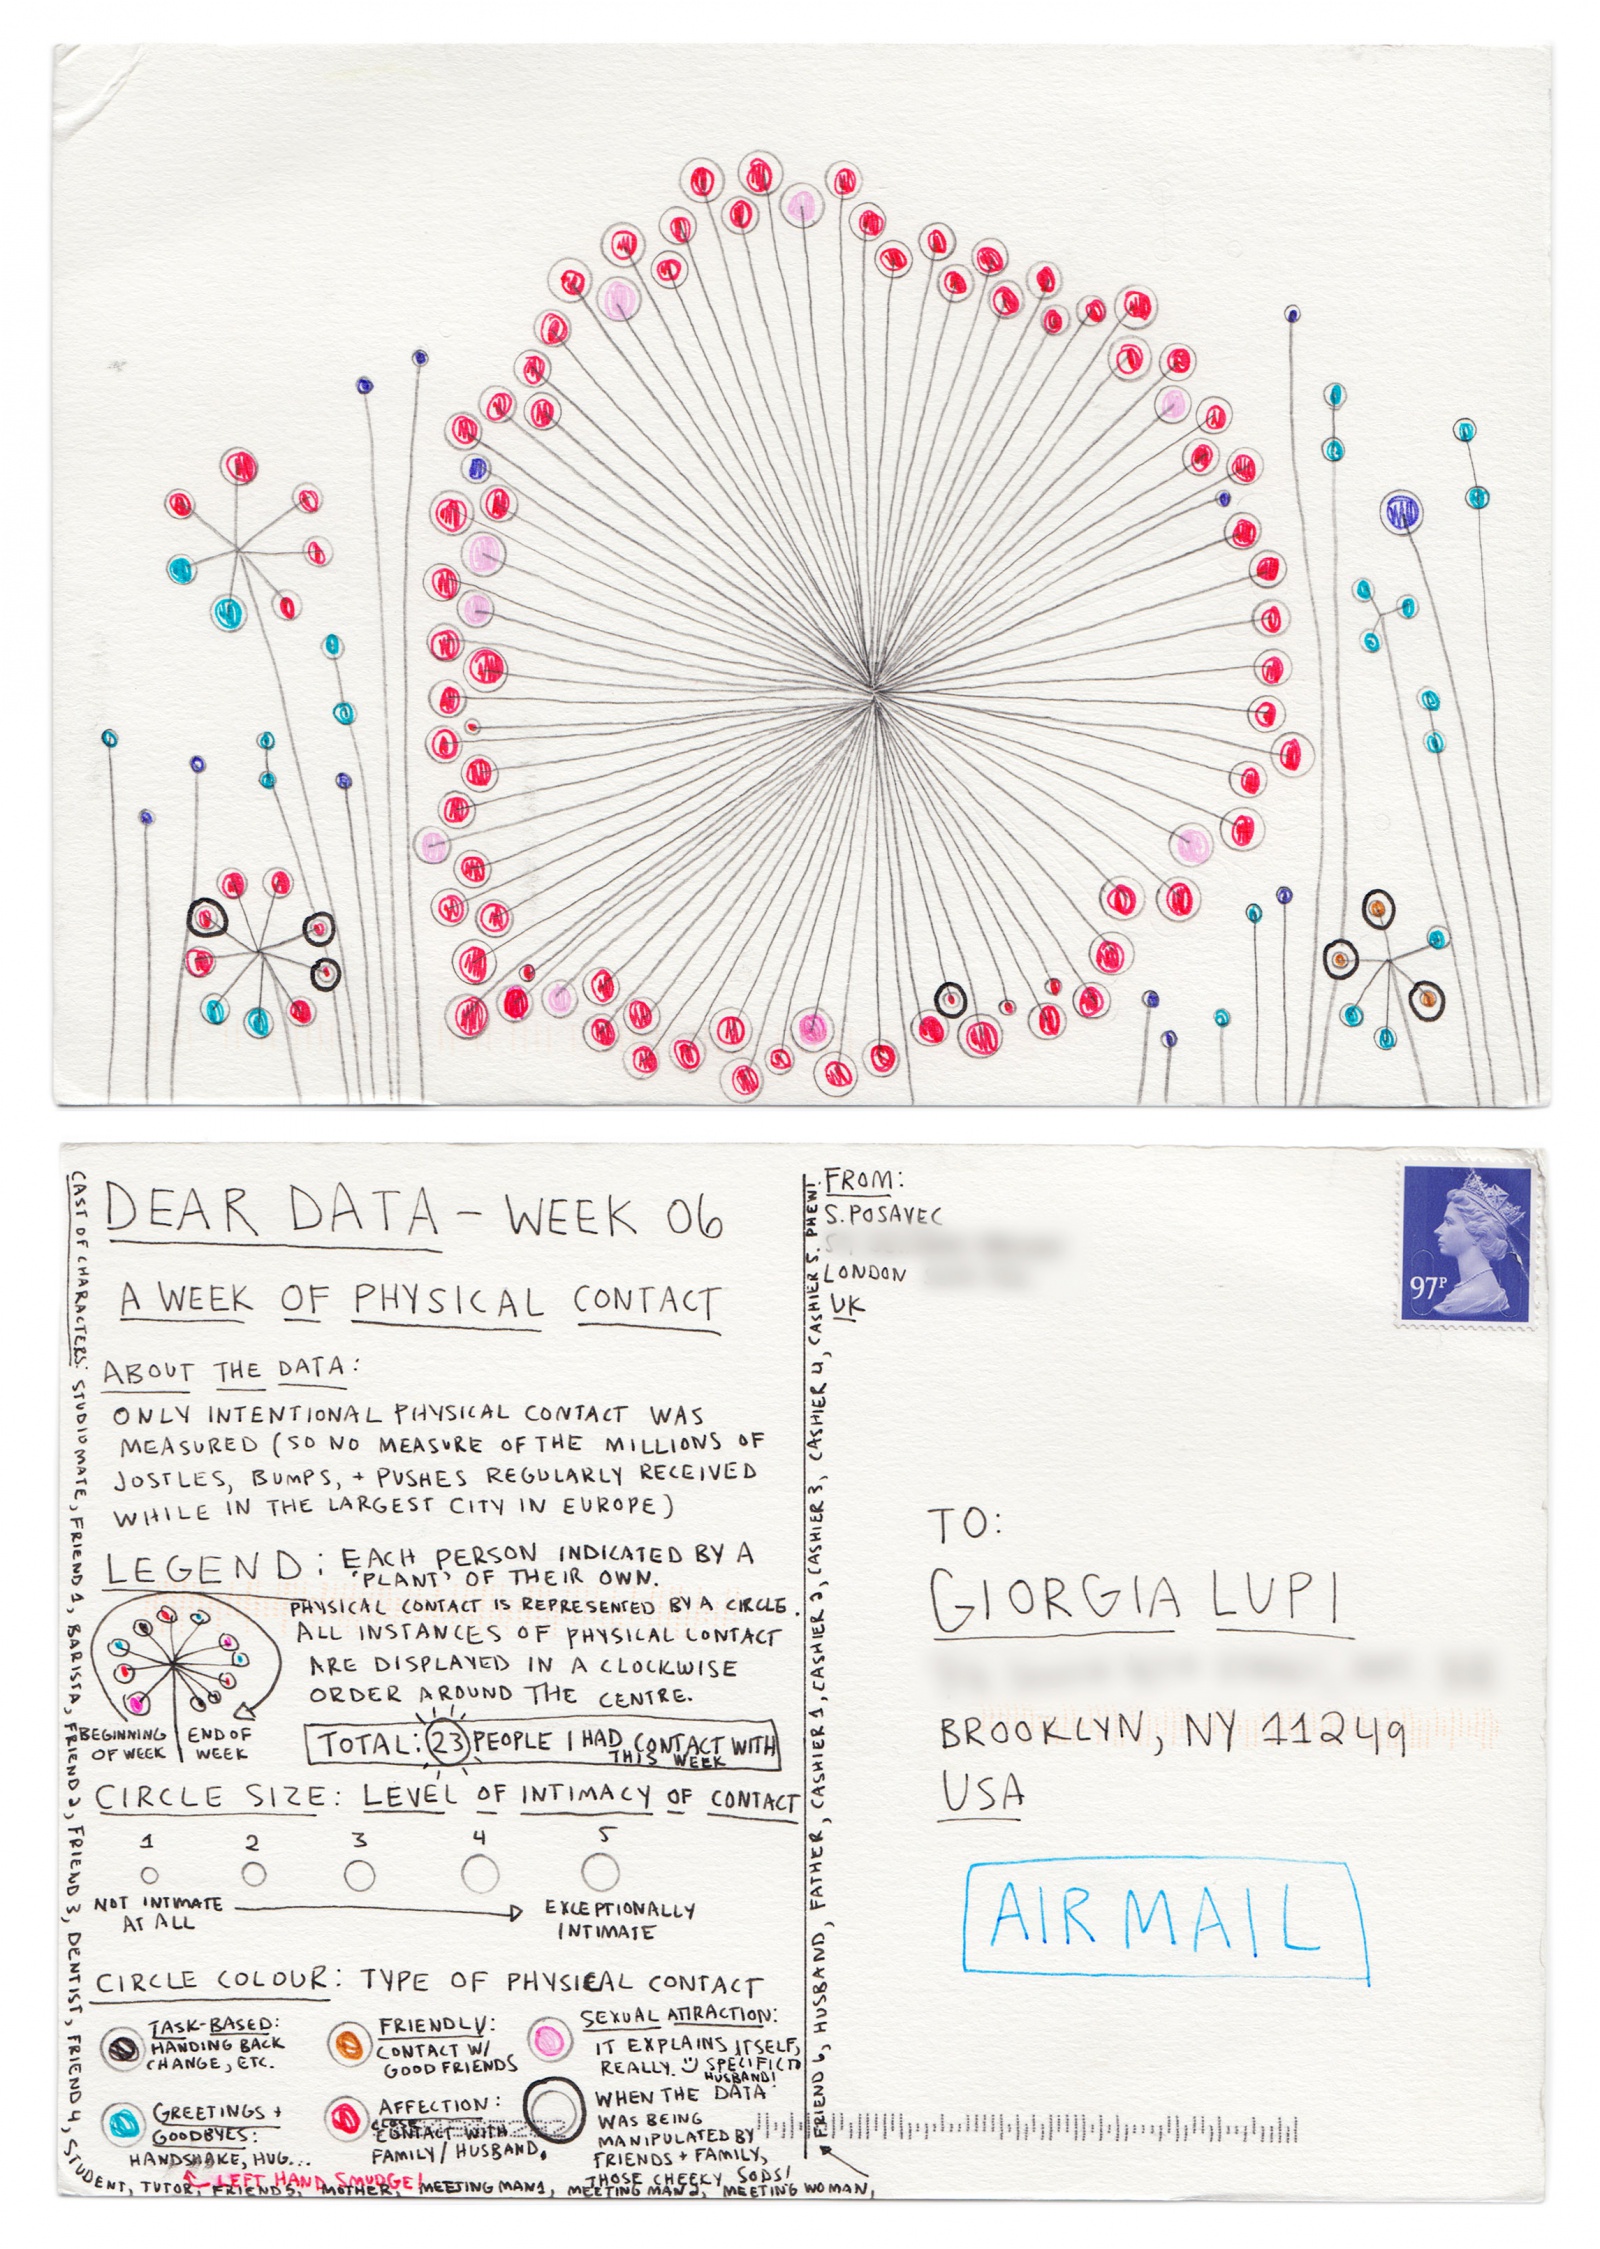 DEAR DATA - WEEK 06
A WEEK OF PHYSICAL CONTACT
ABOUT THE DATA:
ONLY INTENTIONAL PHYSICAL CONTACT WAS
MEASURED (SO NO MEASURE OF THE MILLIONS OF
JOSTLES, BUMPS, + PUSHES REGULARLY RECEIVED
WHILE IN THE LARGEST CITY IN EUROPE)
LEGEND: EACH PERSON INDICATED BY A
'PLANT' OF THEIR OWN.
PHYSICAL CONTACT IS REPRESENTED BY A CIRCLE.
ALL INSTANCES OF PHYSICAL CONTACT
ARE DISPLAYED IN A CLOCKWISE
ORDER AROUND THE CENTRE.
BEGINNING OF WEEK
END OF WEEK
TOTAL: 23 PEOPLE I HAD CONTACT WITH
THIS WEEK
CIRCLE SIZE: LEVEL OF INTIMACY OF CONTACT
1 2 3 4 5
NOT INTIMATE
AT ALL
EXCEPTIONALLY
INTIMATE
CIRCLE COLOUR: TYPE OF PHYSICAL CONTACT
TASK-BASED:
HANDING BACK
CHANGE, ETC.
FRIENDLY:
CONTACT W/
GOOD FRIENDS
SEXUAL ATTRACTION:
IT EXPLAINS ITSELF,
REALLY. SPECIFIC TO
HUSBAND!
GREETINGS +
GOODBYES:
HANDSHAKE, HUG...
AFFECTION:
CLOSE
CONTACT WITH
FAMILY/HUSBAND.
WHEN THE DATA
WAS BEING
MANIPULATED BY
FRIENDS + FAMILY,
THOSE CHEEKY SODS!
LEFT HAND SMUDGE!
CAST OF CHARACTERS: STUDIO MATE, FRIEND 1, BARISTA, FRIEND 2, FRIEND 3, DENTIST, FRIEND 4, STUDENT, TUTOR, FRIEND 5, MOTHER, MEETING MAN 1, MEETING MAN 2, MEETING WOMAN,
FRIEND 6, HUSBAND, FATHER, CASHIER 1, CASHIER 2, CASHIER 3, CASHIER 4, CASHIER 5. PHEW!
FROM:
S. POSAVEC
LONDON
UK
97P
TO:
GIORGIA LUPI
BROOKLYN, NY 11249
USA
AIR MAIL